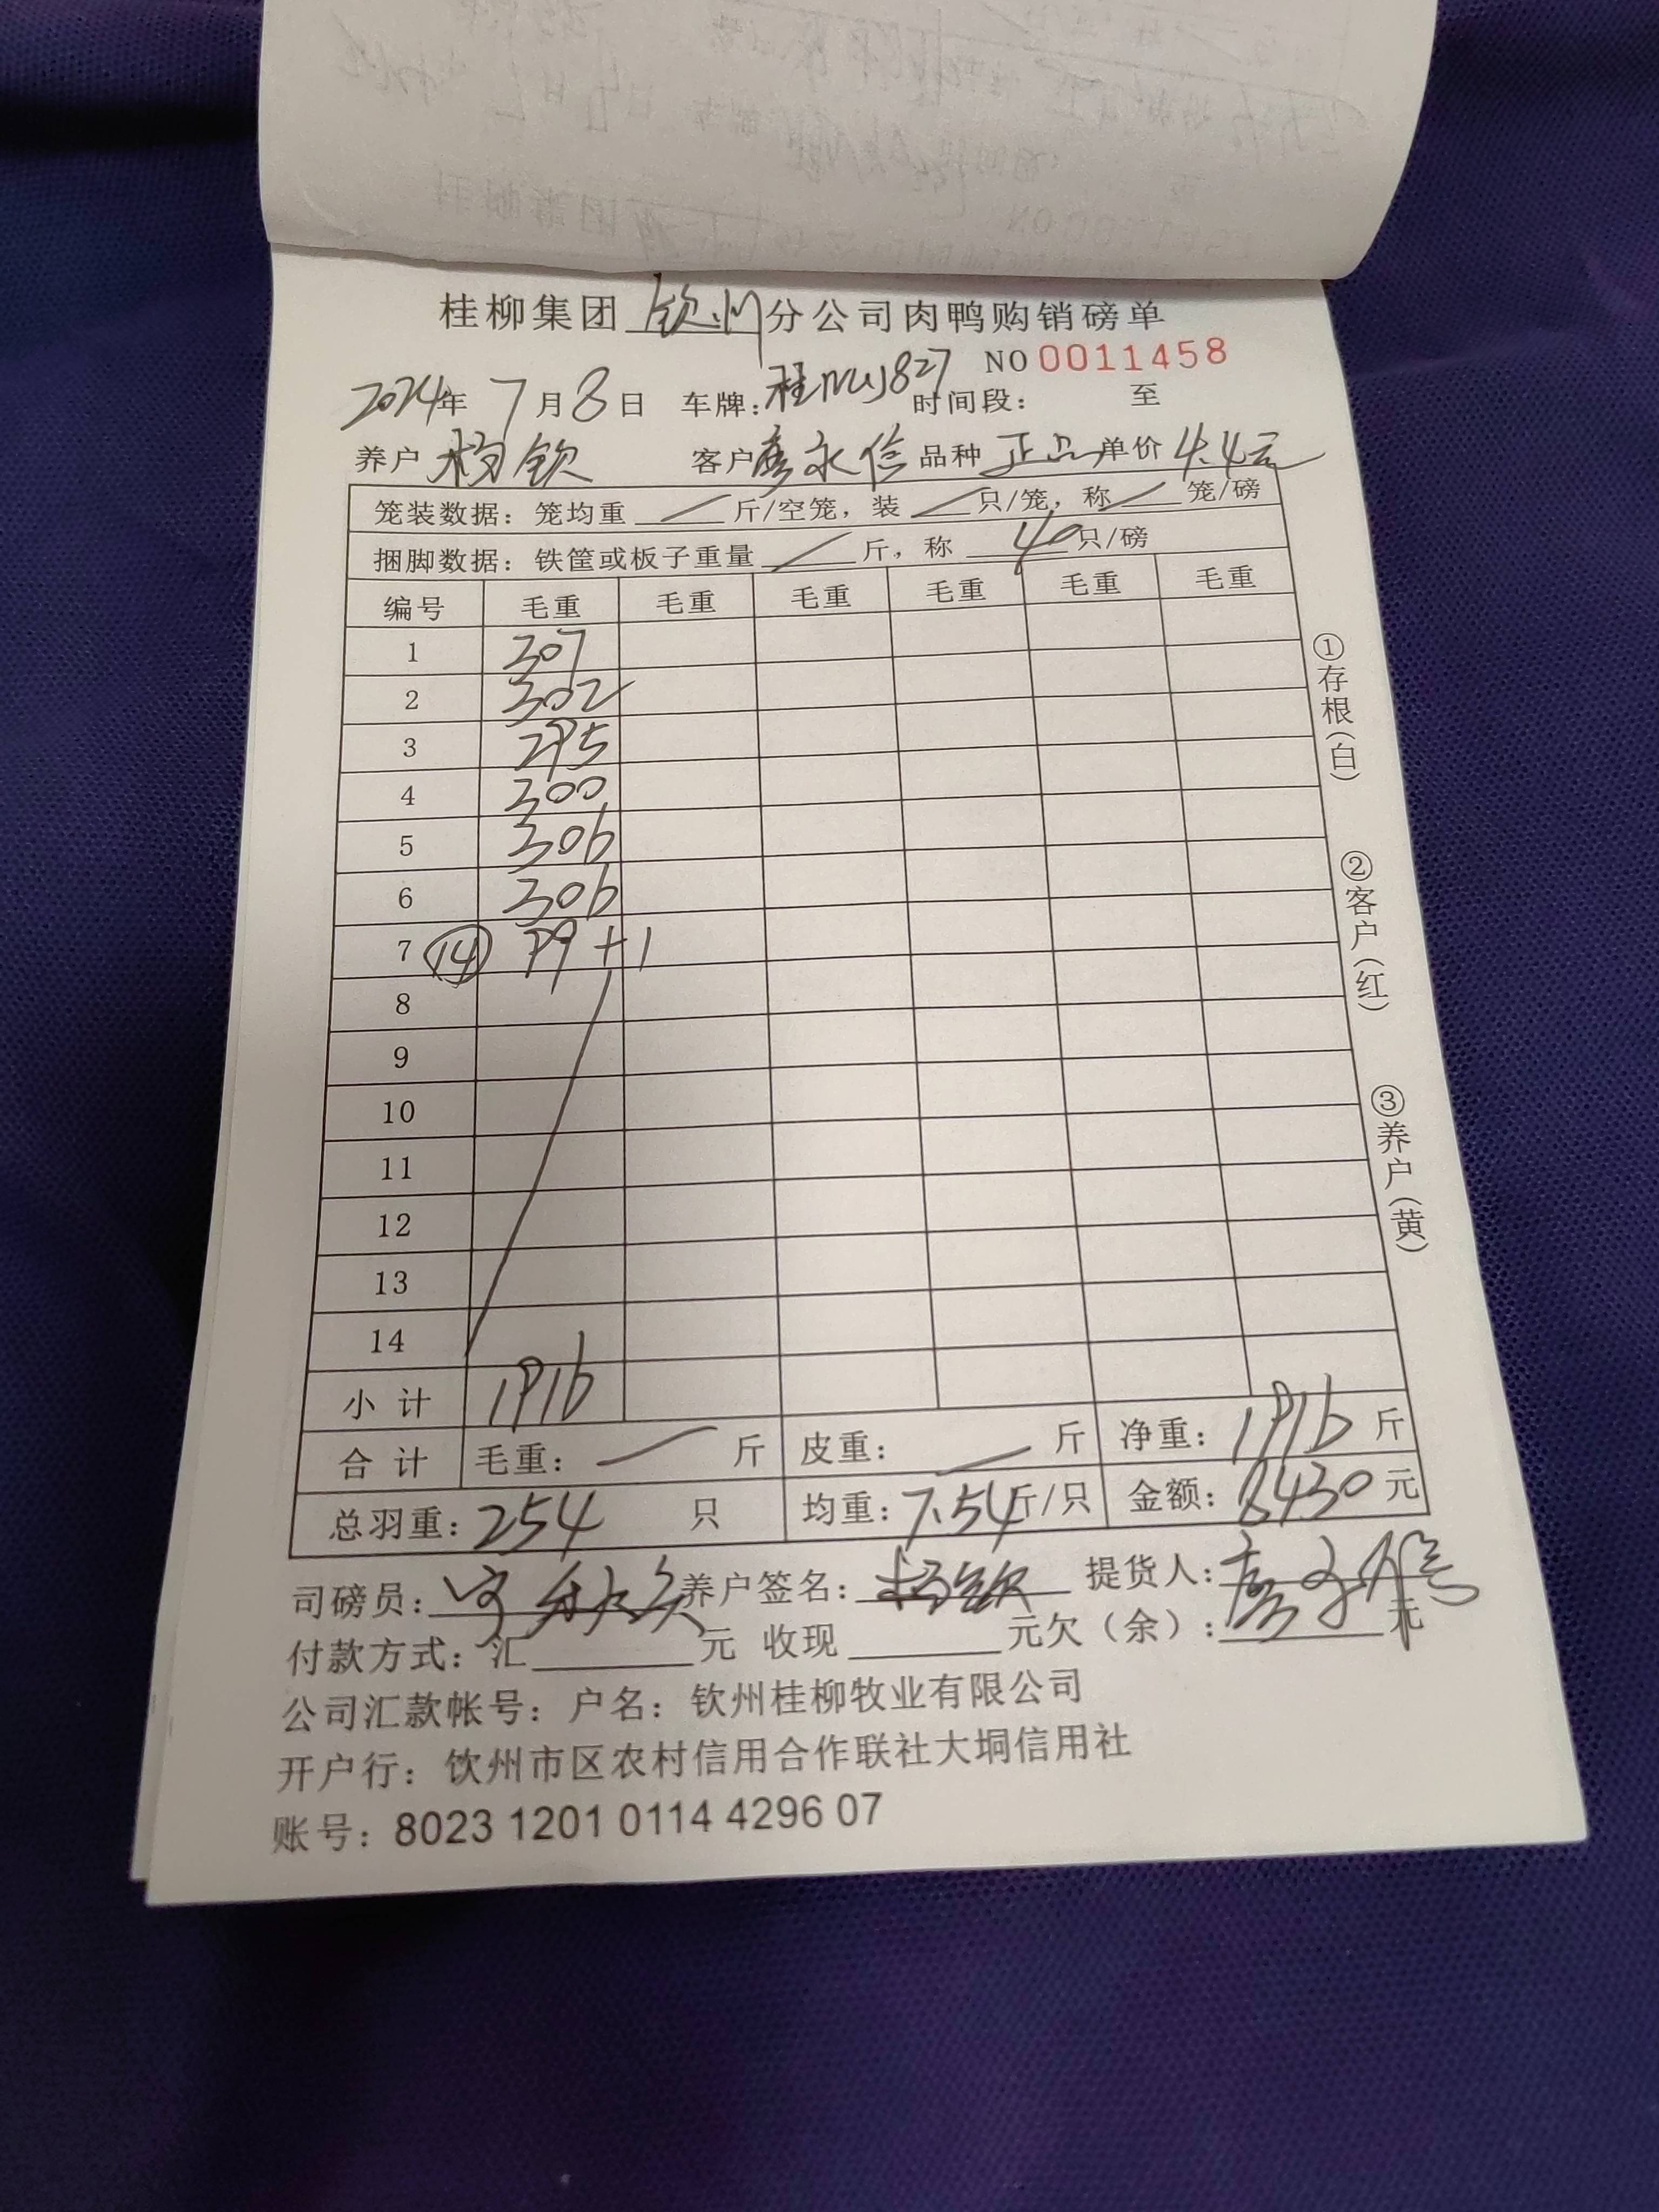 桂柳集团 钦州 分公司肉鸭购销磅单
NO 0011458
2024年 7月8日 车牌: 桂 827 时间段: 至
养户 杨钦 客户 彦永信 品种 正品 单价 4.4元
笼装数据: 笼均重 / 斤/空笼, 装 / 只/笼, 称 / 笼/磅
捆脚数据: 铁筐或板子重量 / 斤, 称 40 只/磅
编号 毛重 毛重 毛重 毛重 毛重 毛重
1 307
2 302
3 295
4 300
5 306
6 306
7 ⑭ 99+1
8
9
10
11
12
13
14
小计 1916
合计 毛重: / 斤 皮重: / 斤 净重: 1916 斤
总羽重: 254 只 均重: 7.54斤/只 金额: 8430 元
司磅员: 养户签名: 杨钦 提货人:
付款方式: 汇 元 收现 元欠(余): 元
公司汇款帐号: 户名: 钦州桂柳牧业有限公司
开户行: 钦州市区农村信用合作联社大垌信用社
账号: 8023 1201 0114 4296 07
①存根(白)
②客户(红)
③养户(黄)